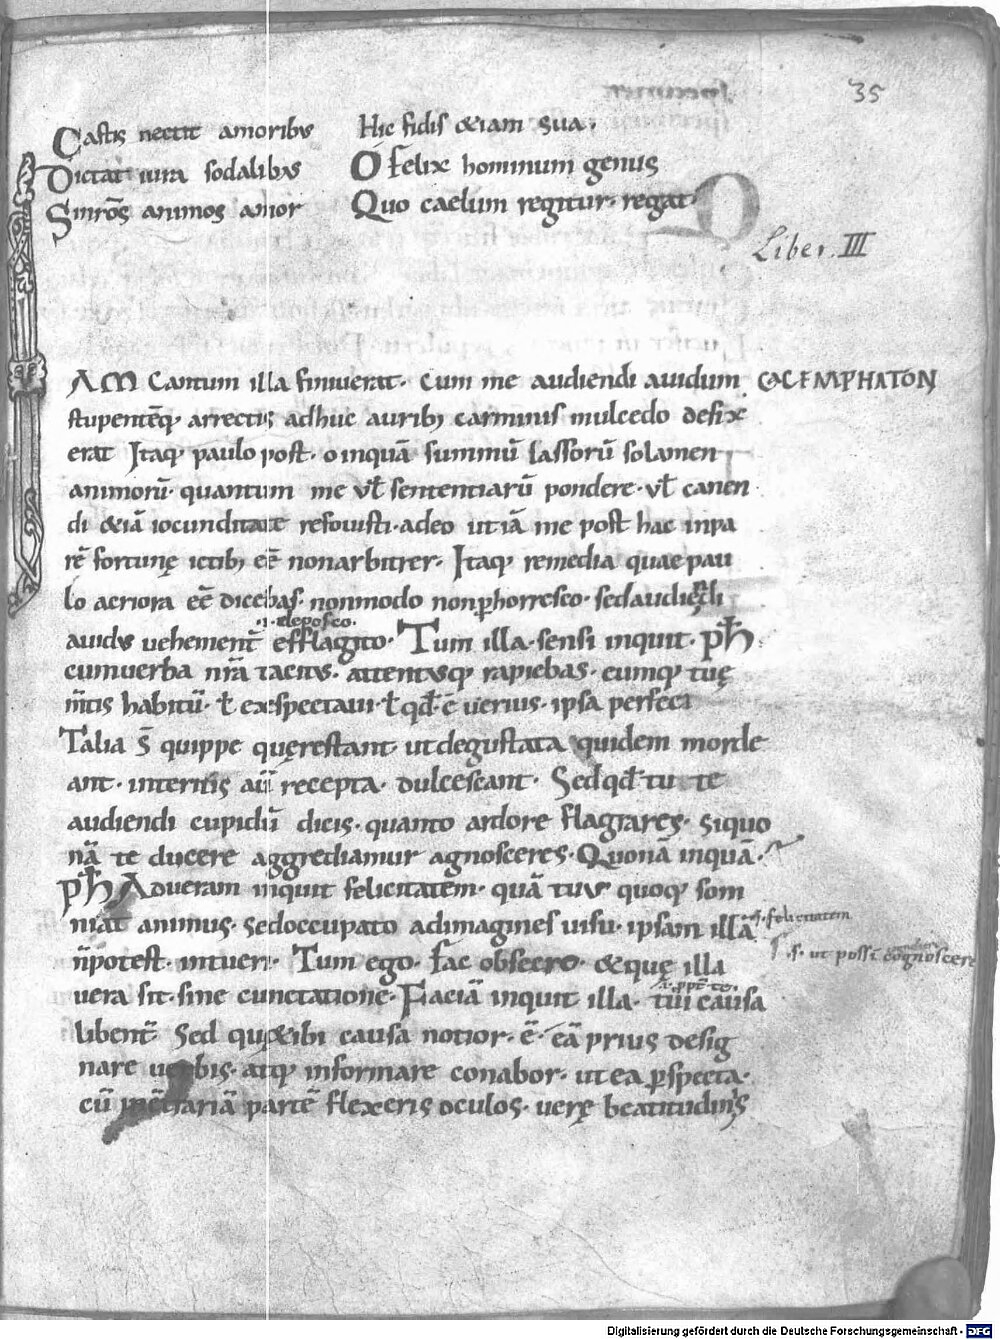 35
Castis nectit amoribus Hic fidis &iam sua.
Dictat iura sodalibus O felix hominum genus
Si ur̄os animos amor Quo caelum regitur. regat.
Liber. III
AM Cantum illa finiuerat. cum me audiendi auidum CACEMPHATON
stupentēq; arrectis adhuc aurib; carminis mulcedo defix
erat Itaq; paulo post. o inquā summū lassorū solamen
animorū. quantum me vl̄ sententiarū pondere. vl̄ canen
di &iā iocunditate refouisti. adeo ut iā me post hac inpa
rē fortunę ictib; eē non arbitrer. Itaq; remedia quae pau
lo acriora eē dicebas. non modo non p̄horresco. sed audiendi
.i. deposco.
auidus uehement̄ efflagito. Tum illa. sensi inquit. pħ
cum uerba nr̄a tacitus. attentusq; rapiebas. eumq; tuę
m̄tis habitū. ł exspectaui. ł qđ ē uerius. ipsa perfeci
Talia s̄ quippe quę restant. ut degustata quidem morde
ant. interius aū recepta. dulcescant. Sed qđ tu te
audiendi cupidū dicis. quanto ardore flagrares. si quo
nā te ducere aggrediamur agnosceres. Quonā inquā.
pħ Ad ueram inquit felicitatem. quā tuus quoq; som
niat animus. sed occupato ad imagines uisu. ipsam illā .s. felicitatem
n̄ potest. intueri. Tum ego. fac obsecro. & quę illa .s. ut possī cognoscere
uera sit. sine cunctatione. Faciā inquit illa. tui causa
libent̄ Sed quę tibi causa notior. ē. eā prius desig
nare uerbis. atq; informare conabor. ut ea p̱specta.
cū in c̄trariā partē flexeris oculos. uerę beatitudinis
Digitalisierung gefördert durch die Deutsche Forschungsgemeinschaft - DFG